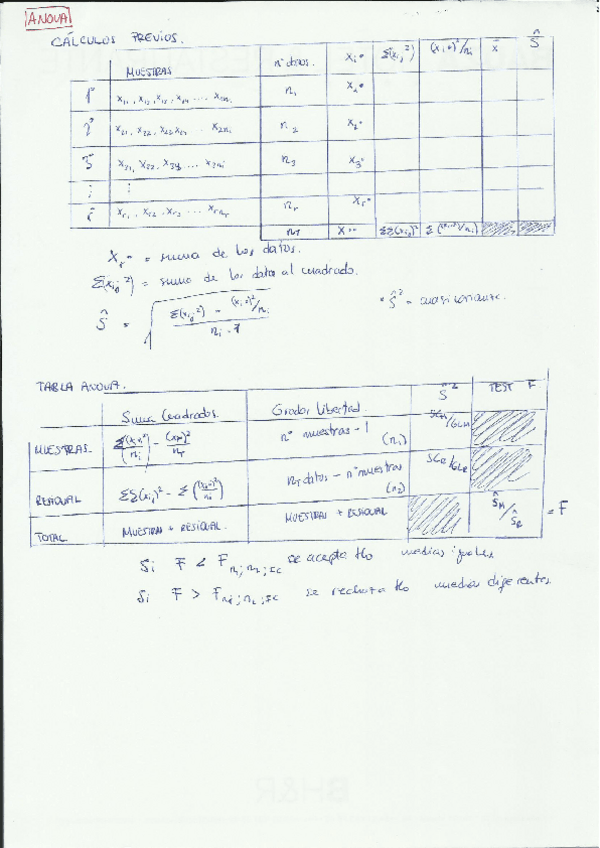 ANOVA
CÁLCULOS PREVIOS.
MUESTRAS nº datos. Xi• Σ(xij²) (xi•)²/ni x̄ Ŝ
1ª x11, x12, x13, x14 .... x1n1 n1 X1•
2ª x21, x22, x23, x24 ... x2n2 n2 X2•
3ª x31, x32, x33, ... x3ni n3 X3•
⋮ ⋮
r xr1, xr2, xr3 ... xrnr nr Xr•
nT X•• ΣΣ(xij)² Σ((xi•)²/ni)
Xr• = suma de los datos.
Σ(xij²) = suma de los datos al cuadrado.
Ŝ = √ Σ(xij²) - (xi•)²/ni / ni - 1 * Ŝ² = cuasivarianza.
TABLA ANOVA.
Suma Cuadrados. Grados Libertad. Ŝ² TEST F
MUESTRAS. Σ((xi•)²/ni) - (x••)²/nT nº muestras - 1 (n1) SCM/GLM
RESIDUAL ΣΣ(xij)² - Σ((xi•)²/ni) nT datos - nº muestras (n2) SCR/GLR
TOTAL MUESTRAS + RESIDUAL. MUESTRAS + RESIDUAL ŜM/ŜR = F
Si F < Fn1;n2;IC se acepta Ho medias iguales
Si F > Fn1;n2;IC se rechaza Ho medias diferentes